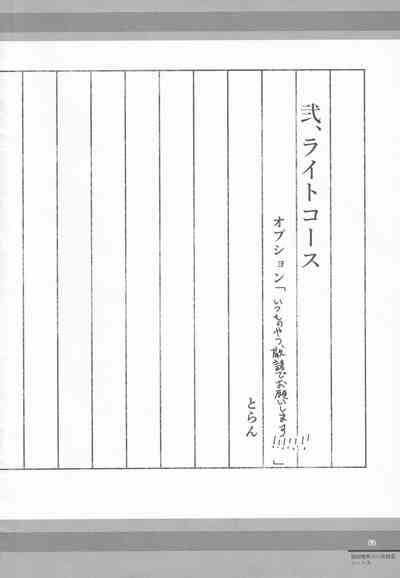 弐、ライトコース
オプション「いつものやつ、敬語でお願いします!!!!!!!」
とらん